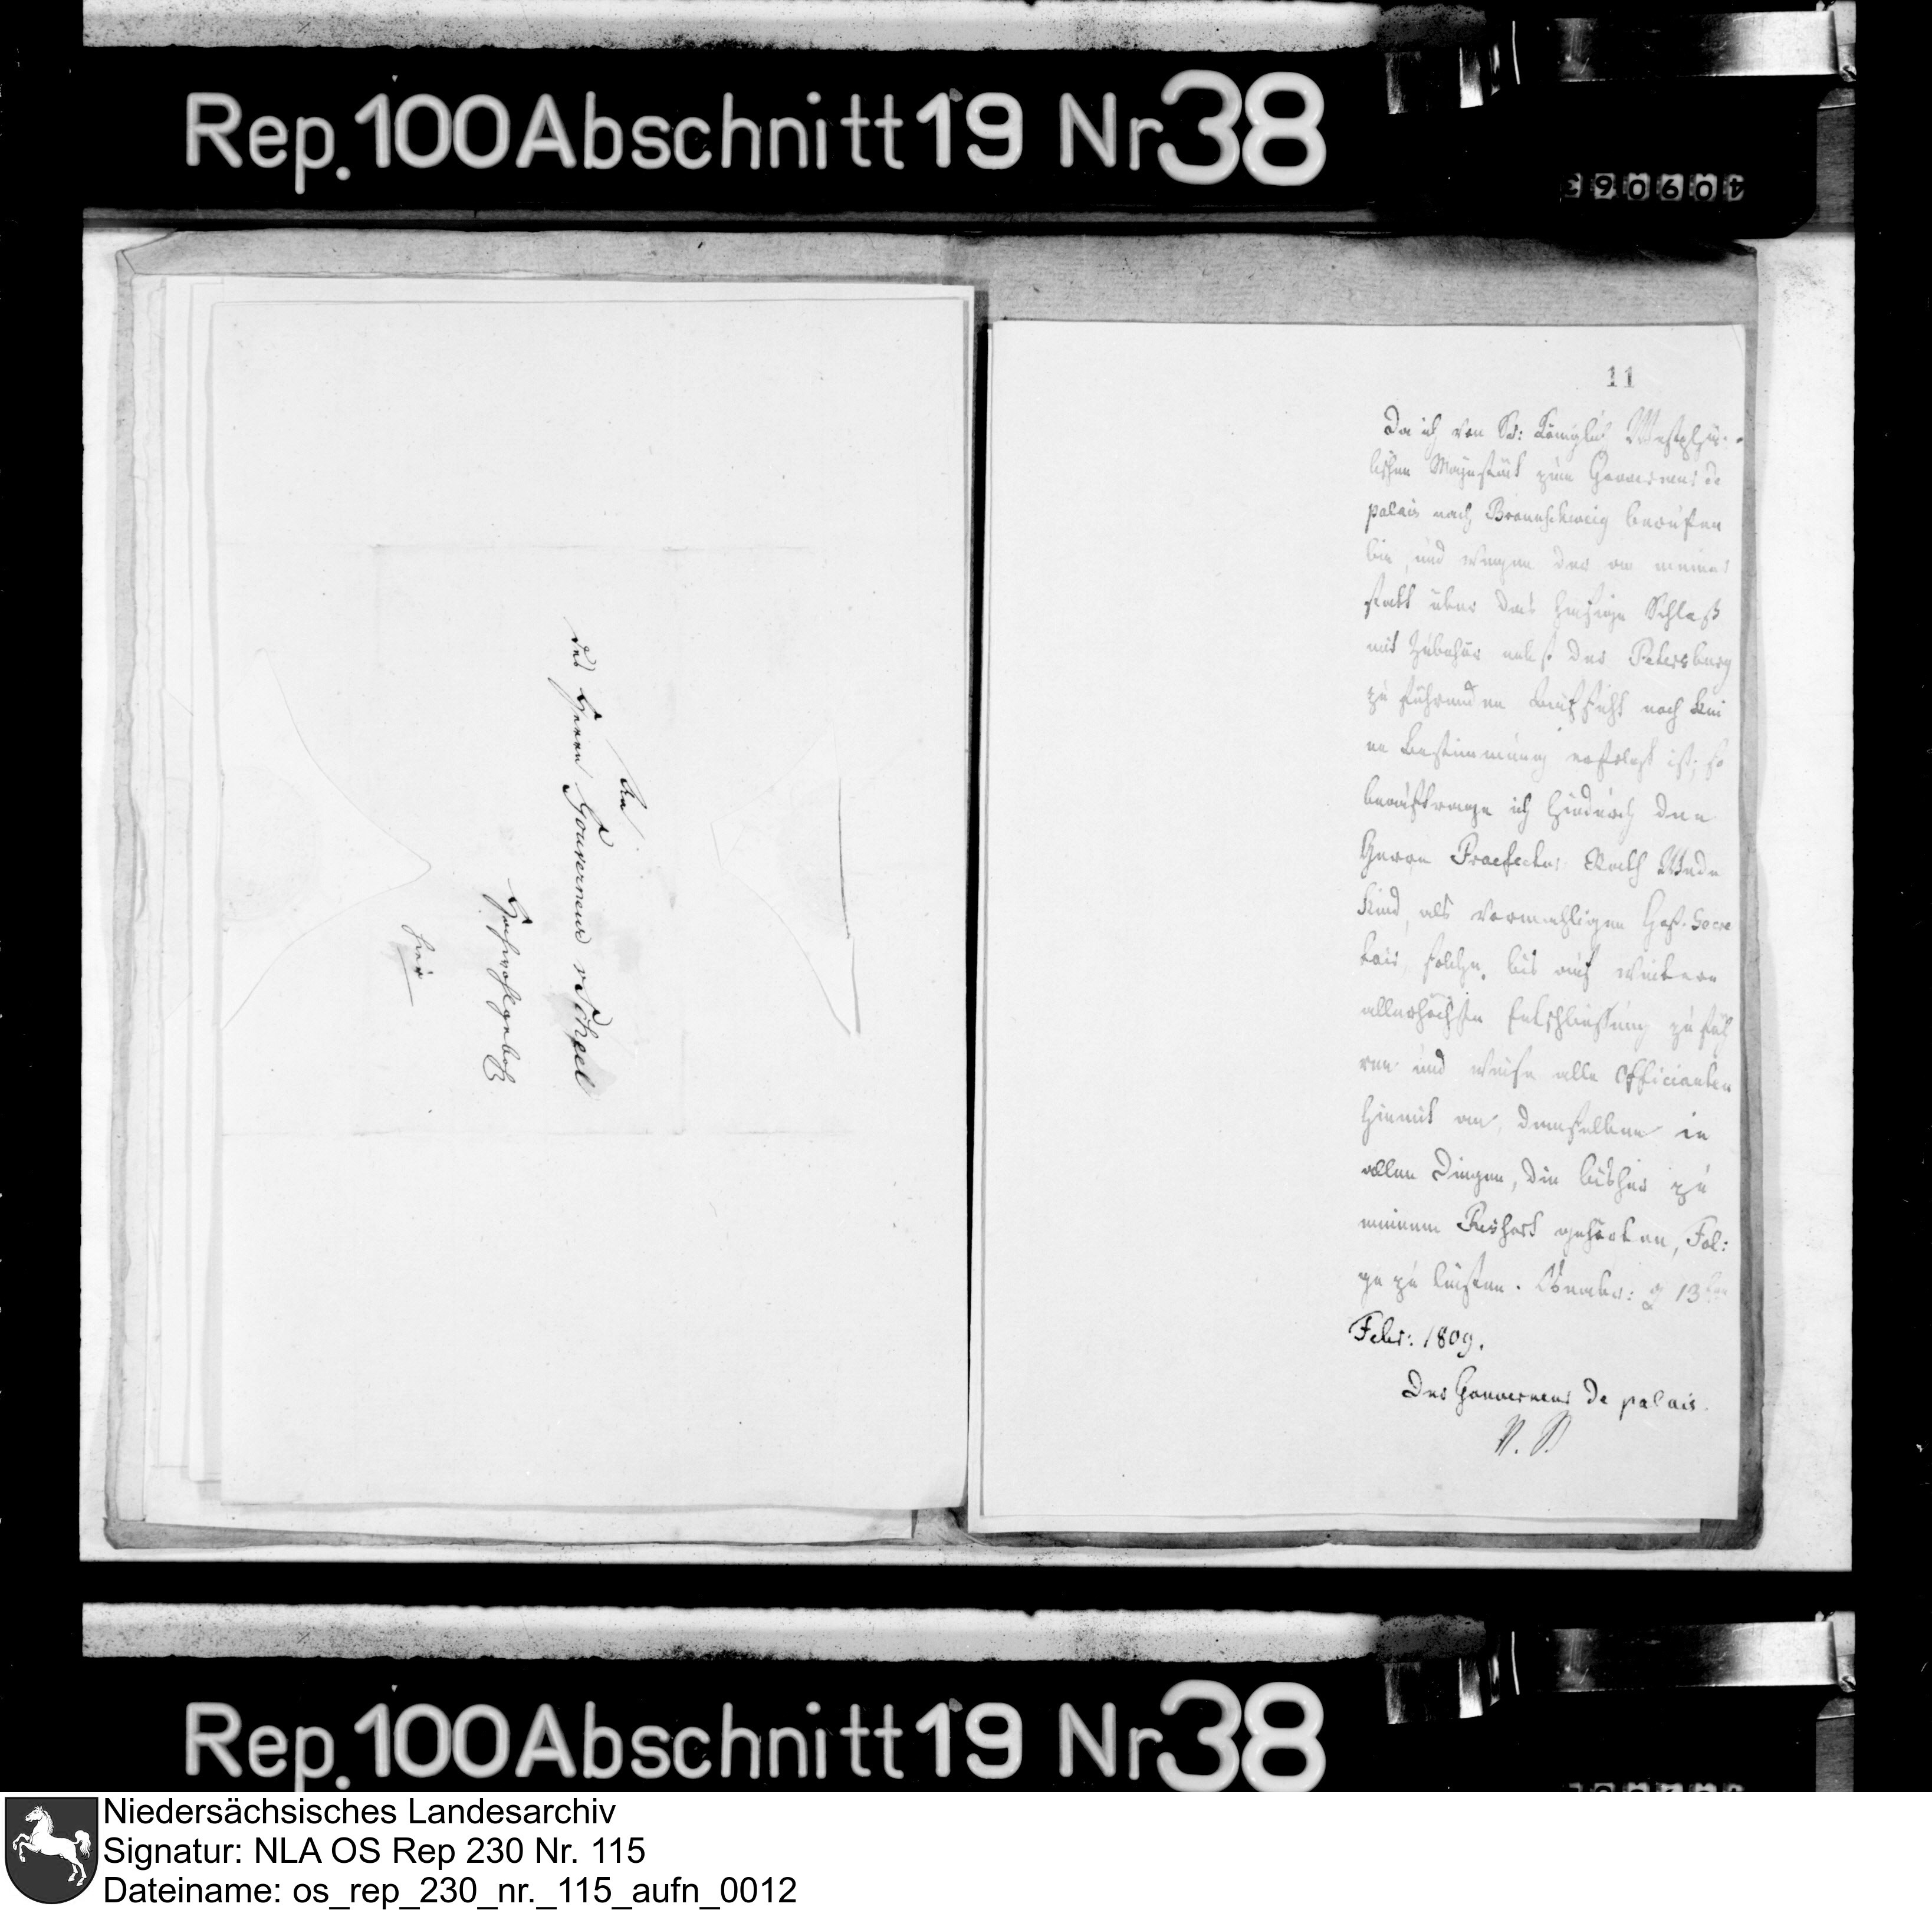 Rep. 100 Abschnitt 19 Nr 38
409063
An
des Herrn Gouverneur v Scheel
Hochwohlgeb.
hier
11
Da ich von Sr: Königl. Westphä-
lischen Majestät zum Gouverneur de
palais nach Braunschweig berufen
bin, und wegen der an meiner
statt über das hiesige Schloß
mit Zubehör nebst der Petersburg
zu führenden Aufsicht noch kei
ne Bestimmung erfolgt ist, so
beauftrage ich hiedurch den
Herrn Praefectur Rath Wede
kind, als vormahligen Hof-Secre
tair, solche bis auf weitere
allerhöchste Entschließung zu füh
ren und weise alle Officianten
hiemit an, demselben in
allen Dingen, die bisher zu
meinem Reshort gehörten, Fol:
ge zu leisten. Osnabr: d 13ten
Febr: 1809.
Der Gouverneur de palais.
Rep. 100 Abschnitt 19 Nr 38
Niedersächsisches Landesarchiv
Signatur: NLA OS Rep 230 Nr. 115
Dateiname: os_rep_230_nr._115_aufn_0012